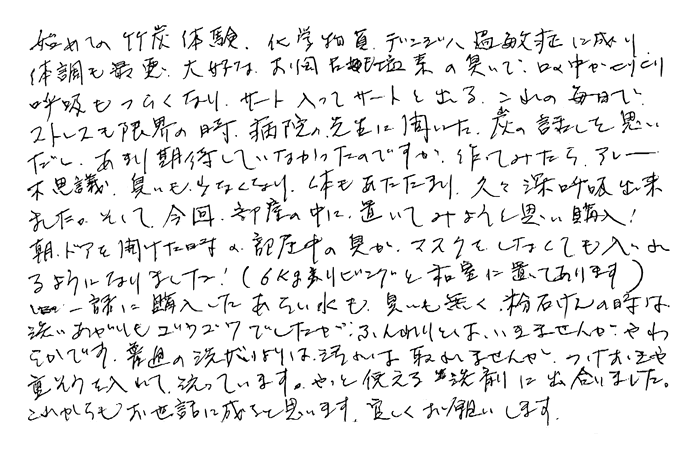 始めての竹炭体験。化学物質、デンジハ過敏症に成り
体調も最悪。大好な、お風呂も塩素の臭いで、口の中がピリピリ
呼吸もつらくなり、サート入ってサートと出る。これの毎日で、
ストレスも限界の時、病院の先生に聞いた、炭の話しを思い
だし、あまり期待していなかったのですが、作ってみたら、アレー
不思議、臭いも少なくなり、体もあたたまり、久々深呼吸出来
ました。そして、今回、部屋の中に、置いてみようと思い購入!
朝、ドアを開けた時の、部屋中の臭が、マスクをしなくても入いれ
るようになりました!(6kg余りリビングと和室に置いてあります)
一諸に購入したあらい水も、臭いも無く、粉石けんの時は
洗いあがりもゴワゴワでしたが、ふんわりとは、いきませんが、やわ
らかです。普通の洗ざいよりは、汚れは取れませんが、つけおきや
重そうを入れて、洗っています。やっと使える洗剤に出合いました。
これからもお世話に成ると思います。宜しくお願いします。